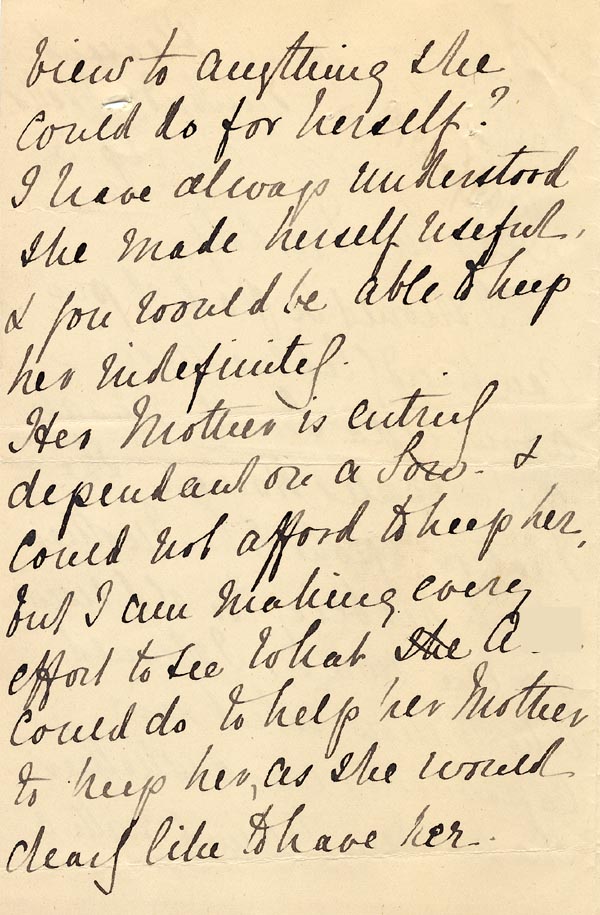 view to anything she
could do for herself?
I have always understood
she made herself useful,
& you would be able to keep
her indefinitely.
Her Mother is entirely
dependant on a Son - &
could not afford to keep her,
but I am making every
effort to see what she A.
could do to help her Mother
to keep her, as she would
dearly like to have her.